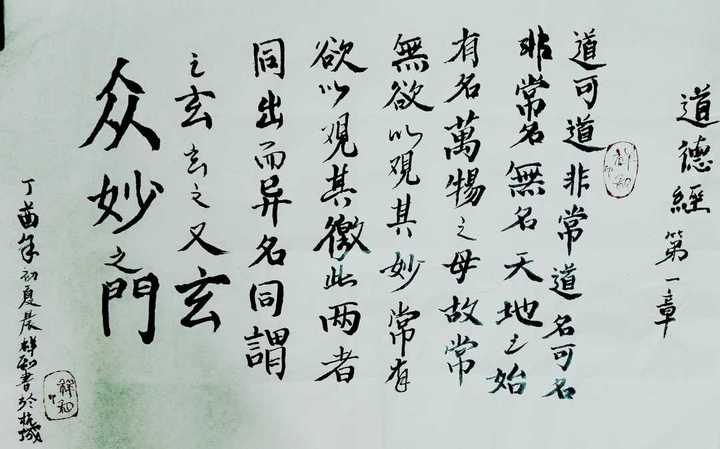 道德經第一章
道可道非常道名可名
非常名無名天地之始
有名萬物之母故常
無欲以觀其妙常有
欲以觀其徼此两者
同出而异名同謂
之玄玄之又玄
众妙之門
丁酉年初夏晨祥和書於杭城
祥和印